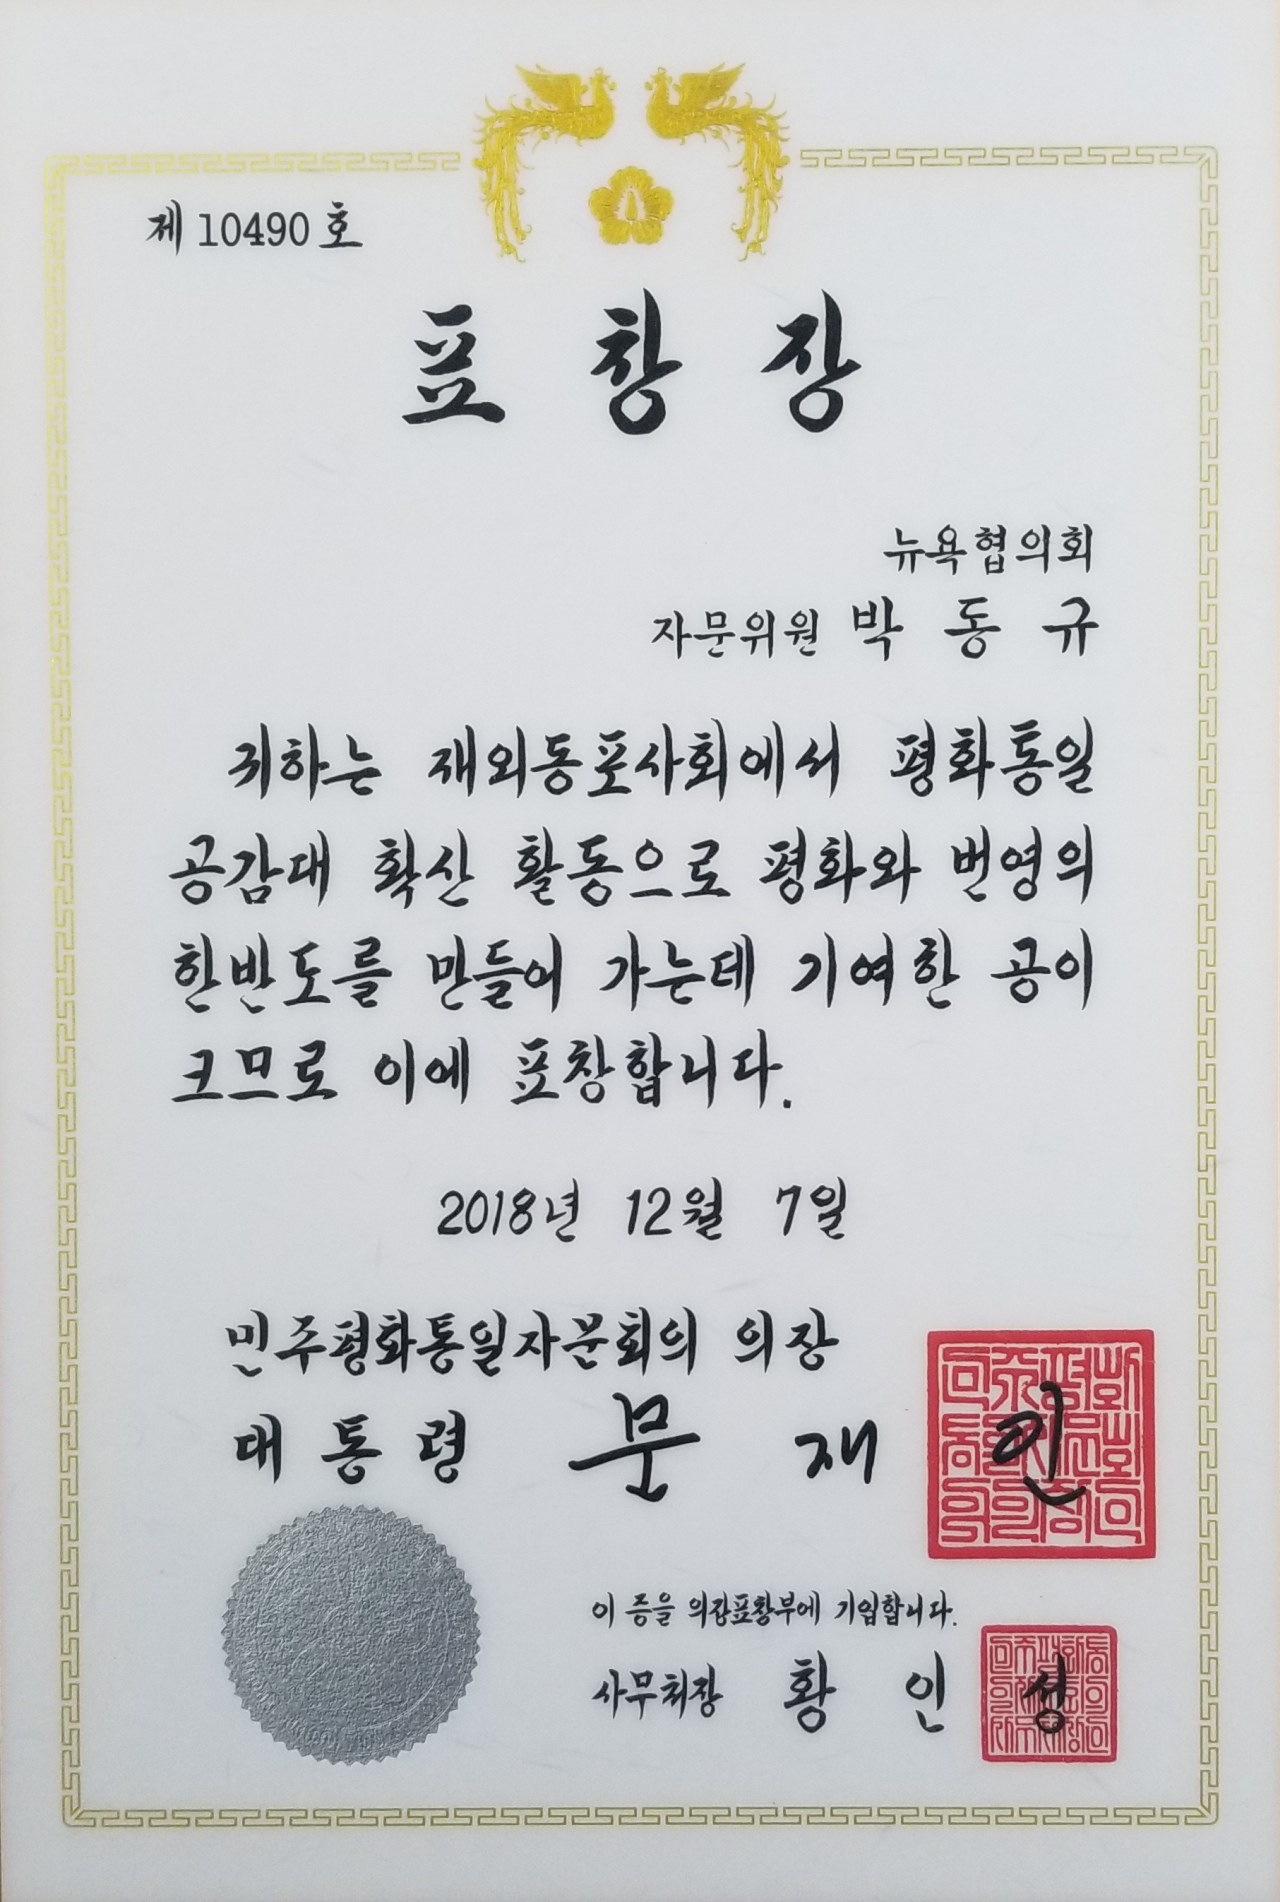 제 10490 호
표 창 장
뉴욕협의회
자문위원 박 동 규
귀하는 재외동포사회에서 평화통일
공감대 확산 활동으로 평화와 번영의
한반도를 만들어 가는데 기여한 공이
크므로 이에 표창합니다.
2018년 12월 7일
민주평화통일자문회의 의장
대 통 령 문 재 인
이 증을 의장표창부에 기입합니다.
사무처장 황 인 성